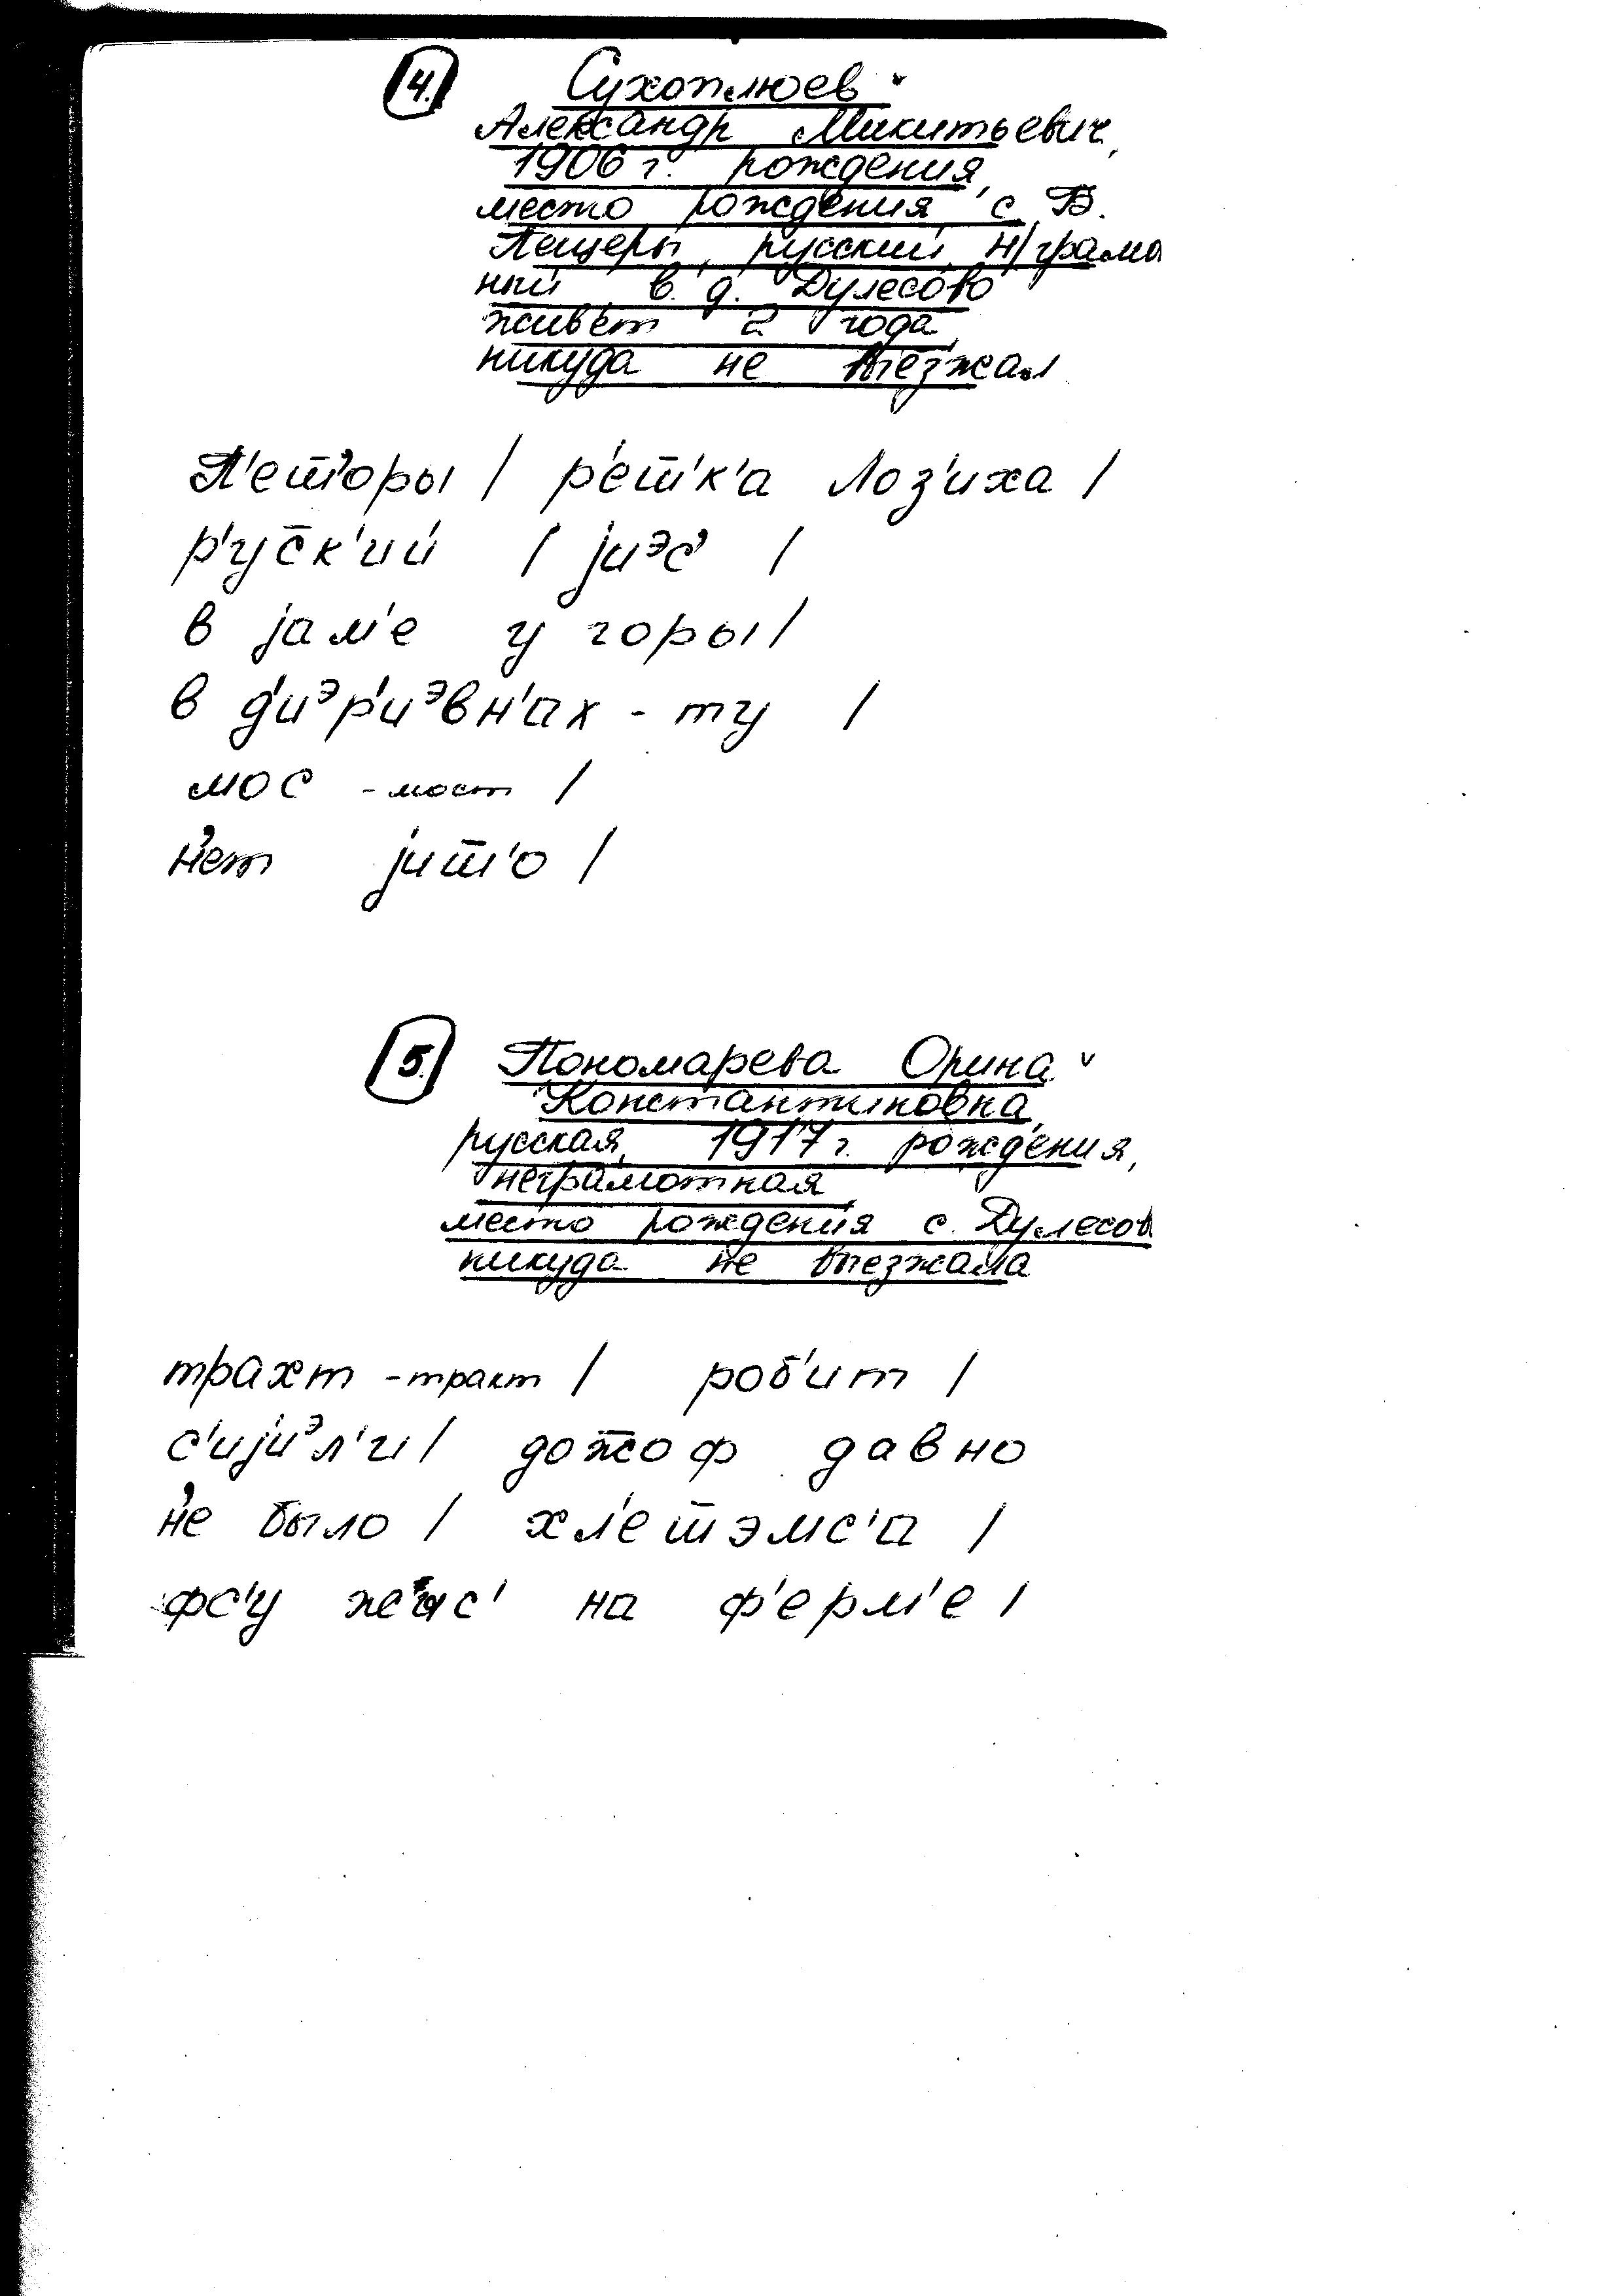 4. Сухоплюев
Александр Микитьевич,
1906 г. рождения,
место рождения с Б.
Пещеры, русский, н/грамо
ный в д. Дулесово
живёт 2 года,
никуда не выезжал
П'еш̅'оры / р'еш'к'а Лоз'иха /
р'ус̅к'ий / jиᵊс' /
в jам'е у горы /
в д'иᵊр'иᵊвн'ах - ту /
мос - мост /
н'ет jиш̅'о /
5. Пономарева Орина
Константиновна,
русская, 1917 г. рождения,
неграмотная,
место рождения с. Дулесов
никуда не выезжала
трахт - тракт / роб'ит /
с'иjиᵊл'и / дож̅оф давно
н'е было / хл'еш̅эмс'а /
фс'у жыс' на ф'ерм'е /